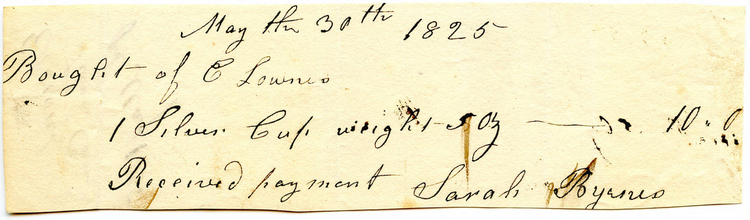 May the 30th 1825
Bought of E Lownes
1 Silver Cup weight 5 oz — 10.0
Received payment Sarah Byrnes